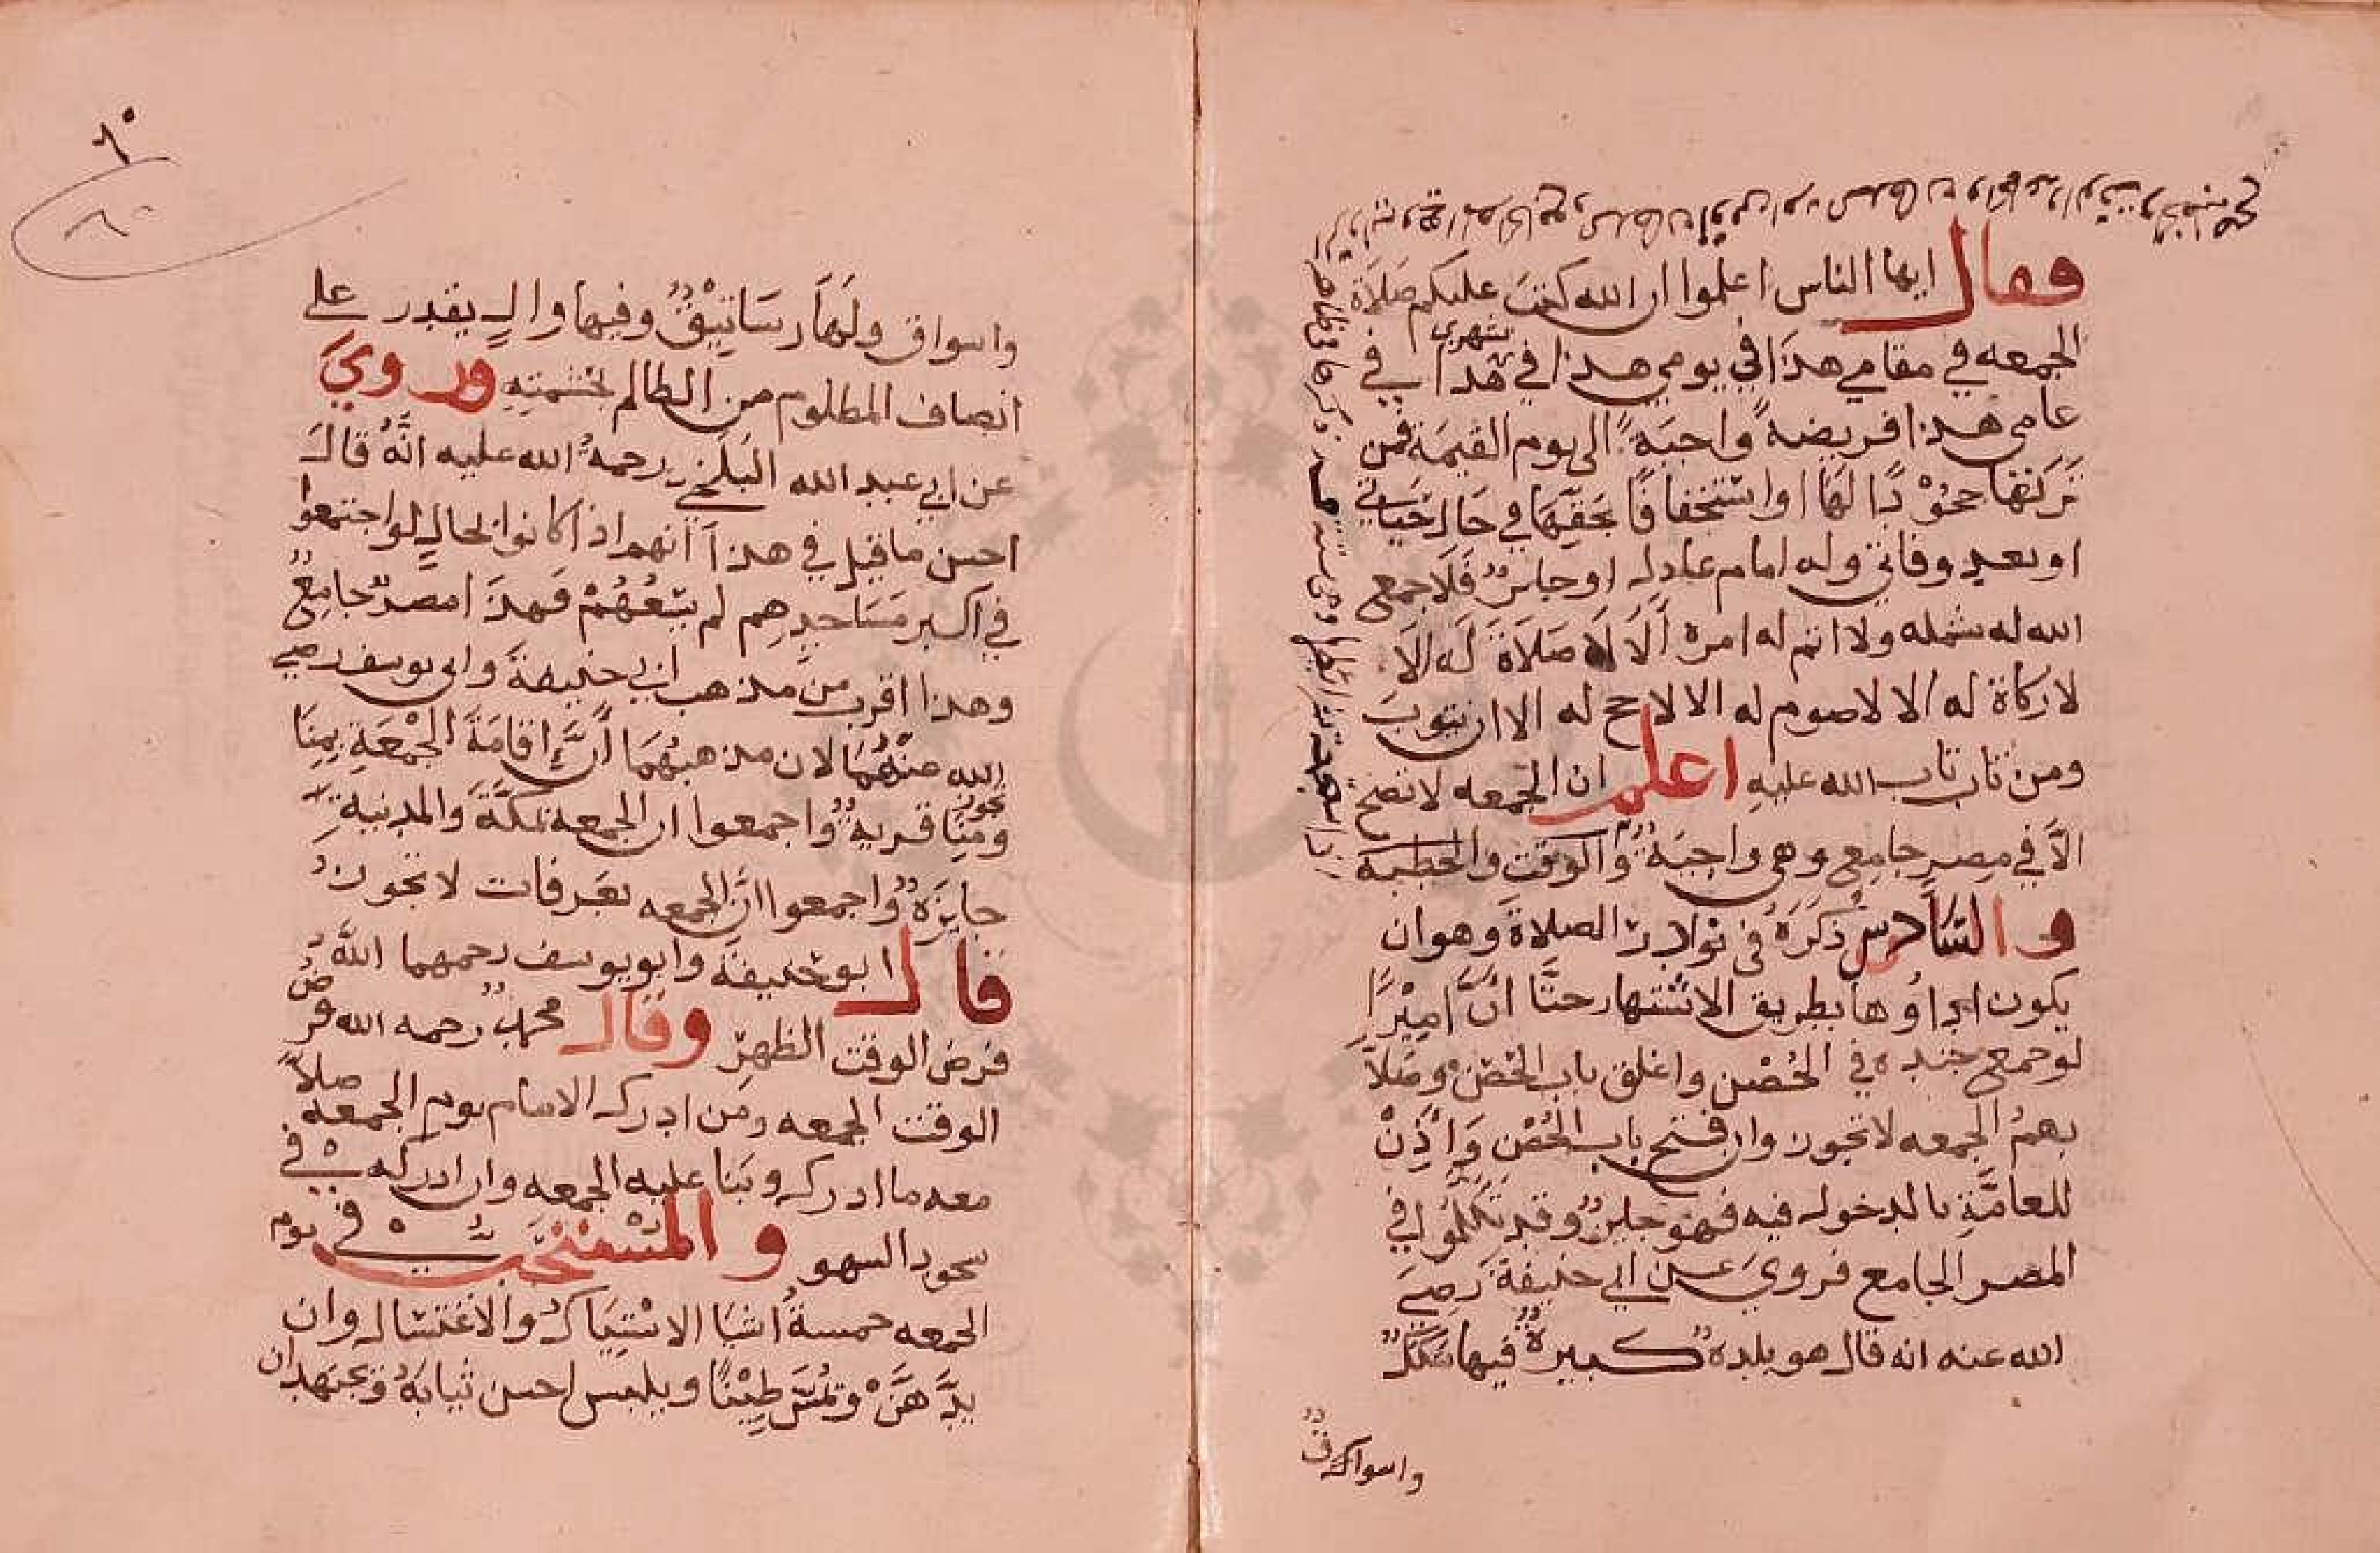 فقال ايها الناس اعلموا ان الله كتب عليكم صلاة
الجمعه في مقامي هذا في يومي هذا في شهري هذا في
عامي هذا فريضة واجبة الى يوم القيمة فمن
تركها جحودا لها او استخفافا بحقها في حال حياتي
او بعد وفاتي وله امام عادل او جاير فلا جمع
الله له شمله ولا اتم له امره الا لا صلاة له الا
لا زكاة له الا لا صوم له الا لا حج له الا ان يتوب
ومن تاب تاب الله عليه اعلم ان الجمعه لا تصح
الا في مصر جامع وهي واجبة والوقت والخطبة
والسادس ذكره في نوادر الصلاة وهو ان
يكون اداؤها بطريق الاشتهار حتا ان اميرا
لو جمع جنده في الحصن واغلق باب الحصن وصلا
بهم الجمعه لا تجوز وان فتح باب الحصن واذن
للعامة بالدخول فيه فهو جايز وقد تكلموا في
المصر الجامع فروي عن ابي حنيفة رضي
الله عنه انه قال هو بلدة كبيرة فيها سكك
واسواق
٦٠
٦٠
واسواق ولها رساتيق وفيها وال يقدر على
انصاف المظلوم من الظالم بحشمته وروي
عن ابي عبد الله البلخي رحمة الله عليه انه قال
احسن ما قيل في هذا انهم اذا كانوا بحال لو اجتمعوا
في اكبر مساجدهم لم يسعهم فهذا مصر جامع
وهذا اقرب من مذهب ابي حنيفة وابي يوسف رضي
الله عنهما لان مذهبهما ان اقامة الجمعة بمنا
تجوز
ومنا قرية واجمعوا ان الجمعة بمكة والمدينة
جايزة واجمعوا ان الجمعه بعرفات لا تجوز
قال ابو حنيفة وابو يوسف رحمهما الله
فرض الوقت الظهر وقال محمد رحمه الله فرض
الوقت الجمعه ومن ادرك الامام يوم الجمعه صلا
معه ما ادرك وبنا عليه الجمعه وان ادركه في
سجود السهو والمستحب في يوم
الجمعه خمسة اشيا الاستياك والاغتسال وان
يدهن ويمس طيبا ويلبس احسن ثيابه ويجتهد ان